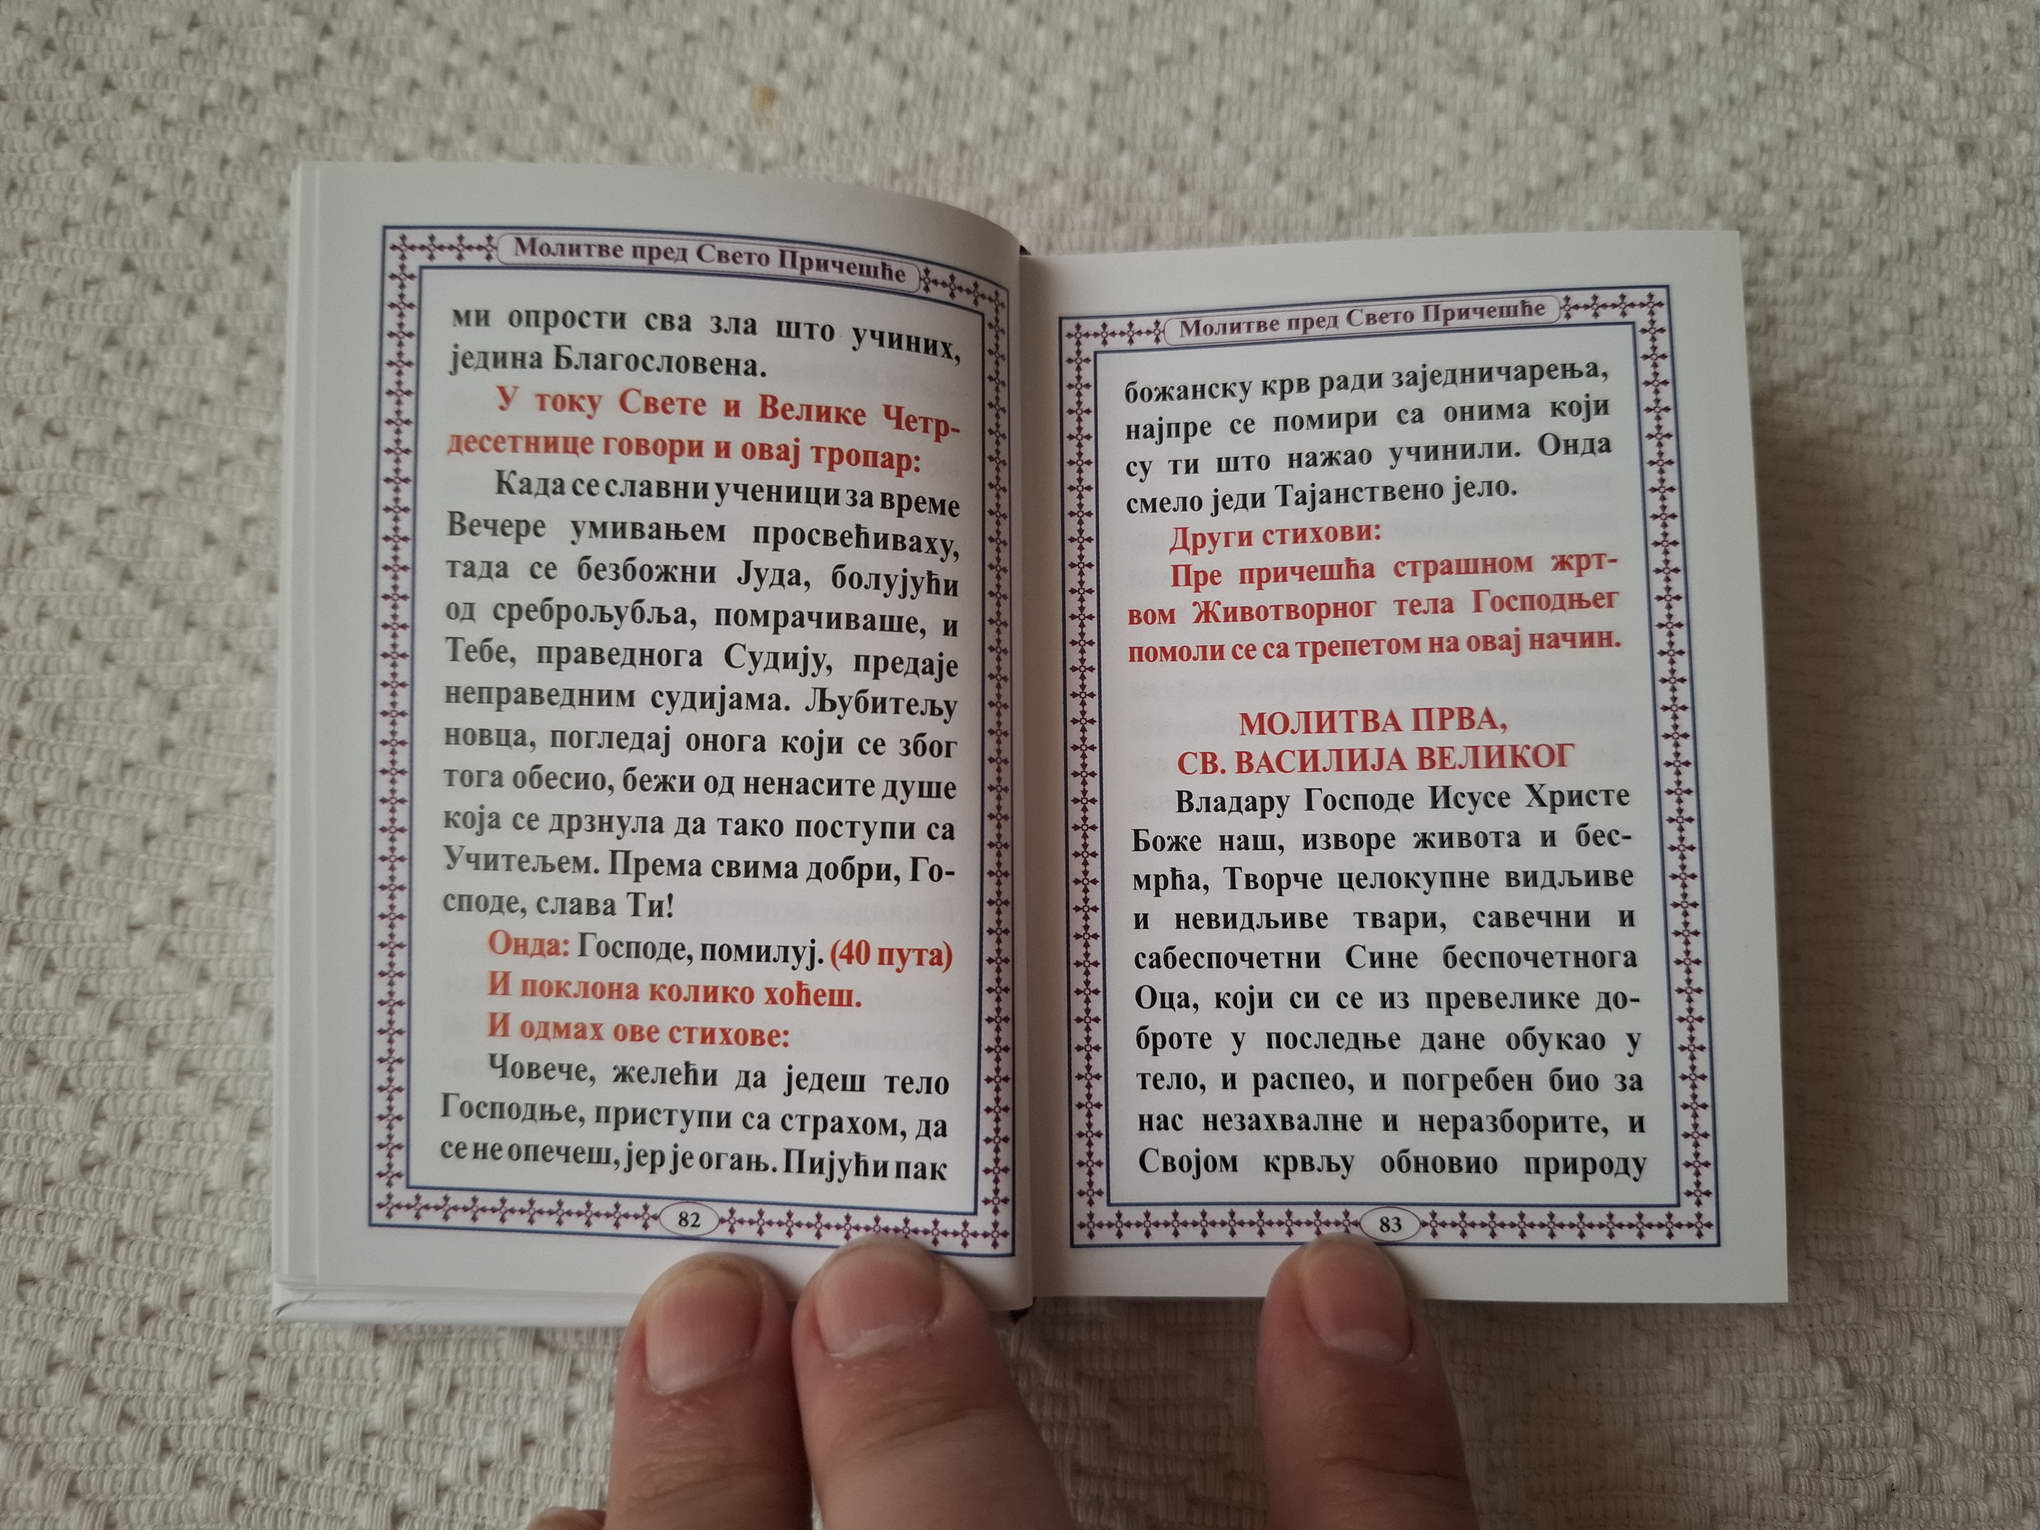 Молитве пред Свето Причешће
ми опрости сва зла што учиних,
једина Благословена.
У току Свете и Велике Четр-
десетнице говори и овај тропар:
Када се славни ученици за време
Вечере умивањем просвећиваху,
тада се безбожни Јуда, болујући
од среброљубља, помрачиваше, и
Тебе, праведнога Судију, предаје
неправедним судијама. Љубитељу
новца, погледај онога који се због
тога обесио, бежи од ненасите душе
која се дрзнула да тако поступи са
Учитељем. Према свима добри, Го-
споде, слава Ти!
Онда: Господе, помилуј. (40 пута)
И поклона колико хоћеш.
И одмах ове стихове:
Човече, желећи да једеш тело
Господње, приступи са страхом, да
се не опечеш, јер је огањ. Пијући пак
82
Молитве пред Свето Причешће
божанску крв ради заједничарења,
најпре се помири са онима који
су ти што нажао учинили. Онда
смело једи Тајанствено јело.
Други стихови:
Пре причешћа страшном жрт-
вом Животворног тела Господњег
помоли се са трепетом на овај начин.
МОЛИТВА ПРВА,
СВ. ВАСИЛИЈА ВЕЛИКОГ
Владару Господе Исусе Христе
Боже наш, изворе живота и бес-
мрћа, Творче целокупне видљиве
и невидљиве твари, савечни и
сабеспочетни Сине беспочетнога
Оца, који си се из превелике до-
броте у последње дане обукао у
тело, и распео, и погребен био за
нас незахвалне и неразборите, и
Својом крвљу обновио природу
83